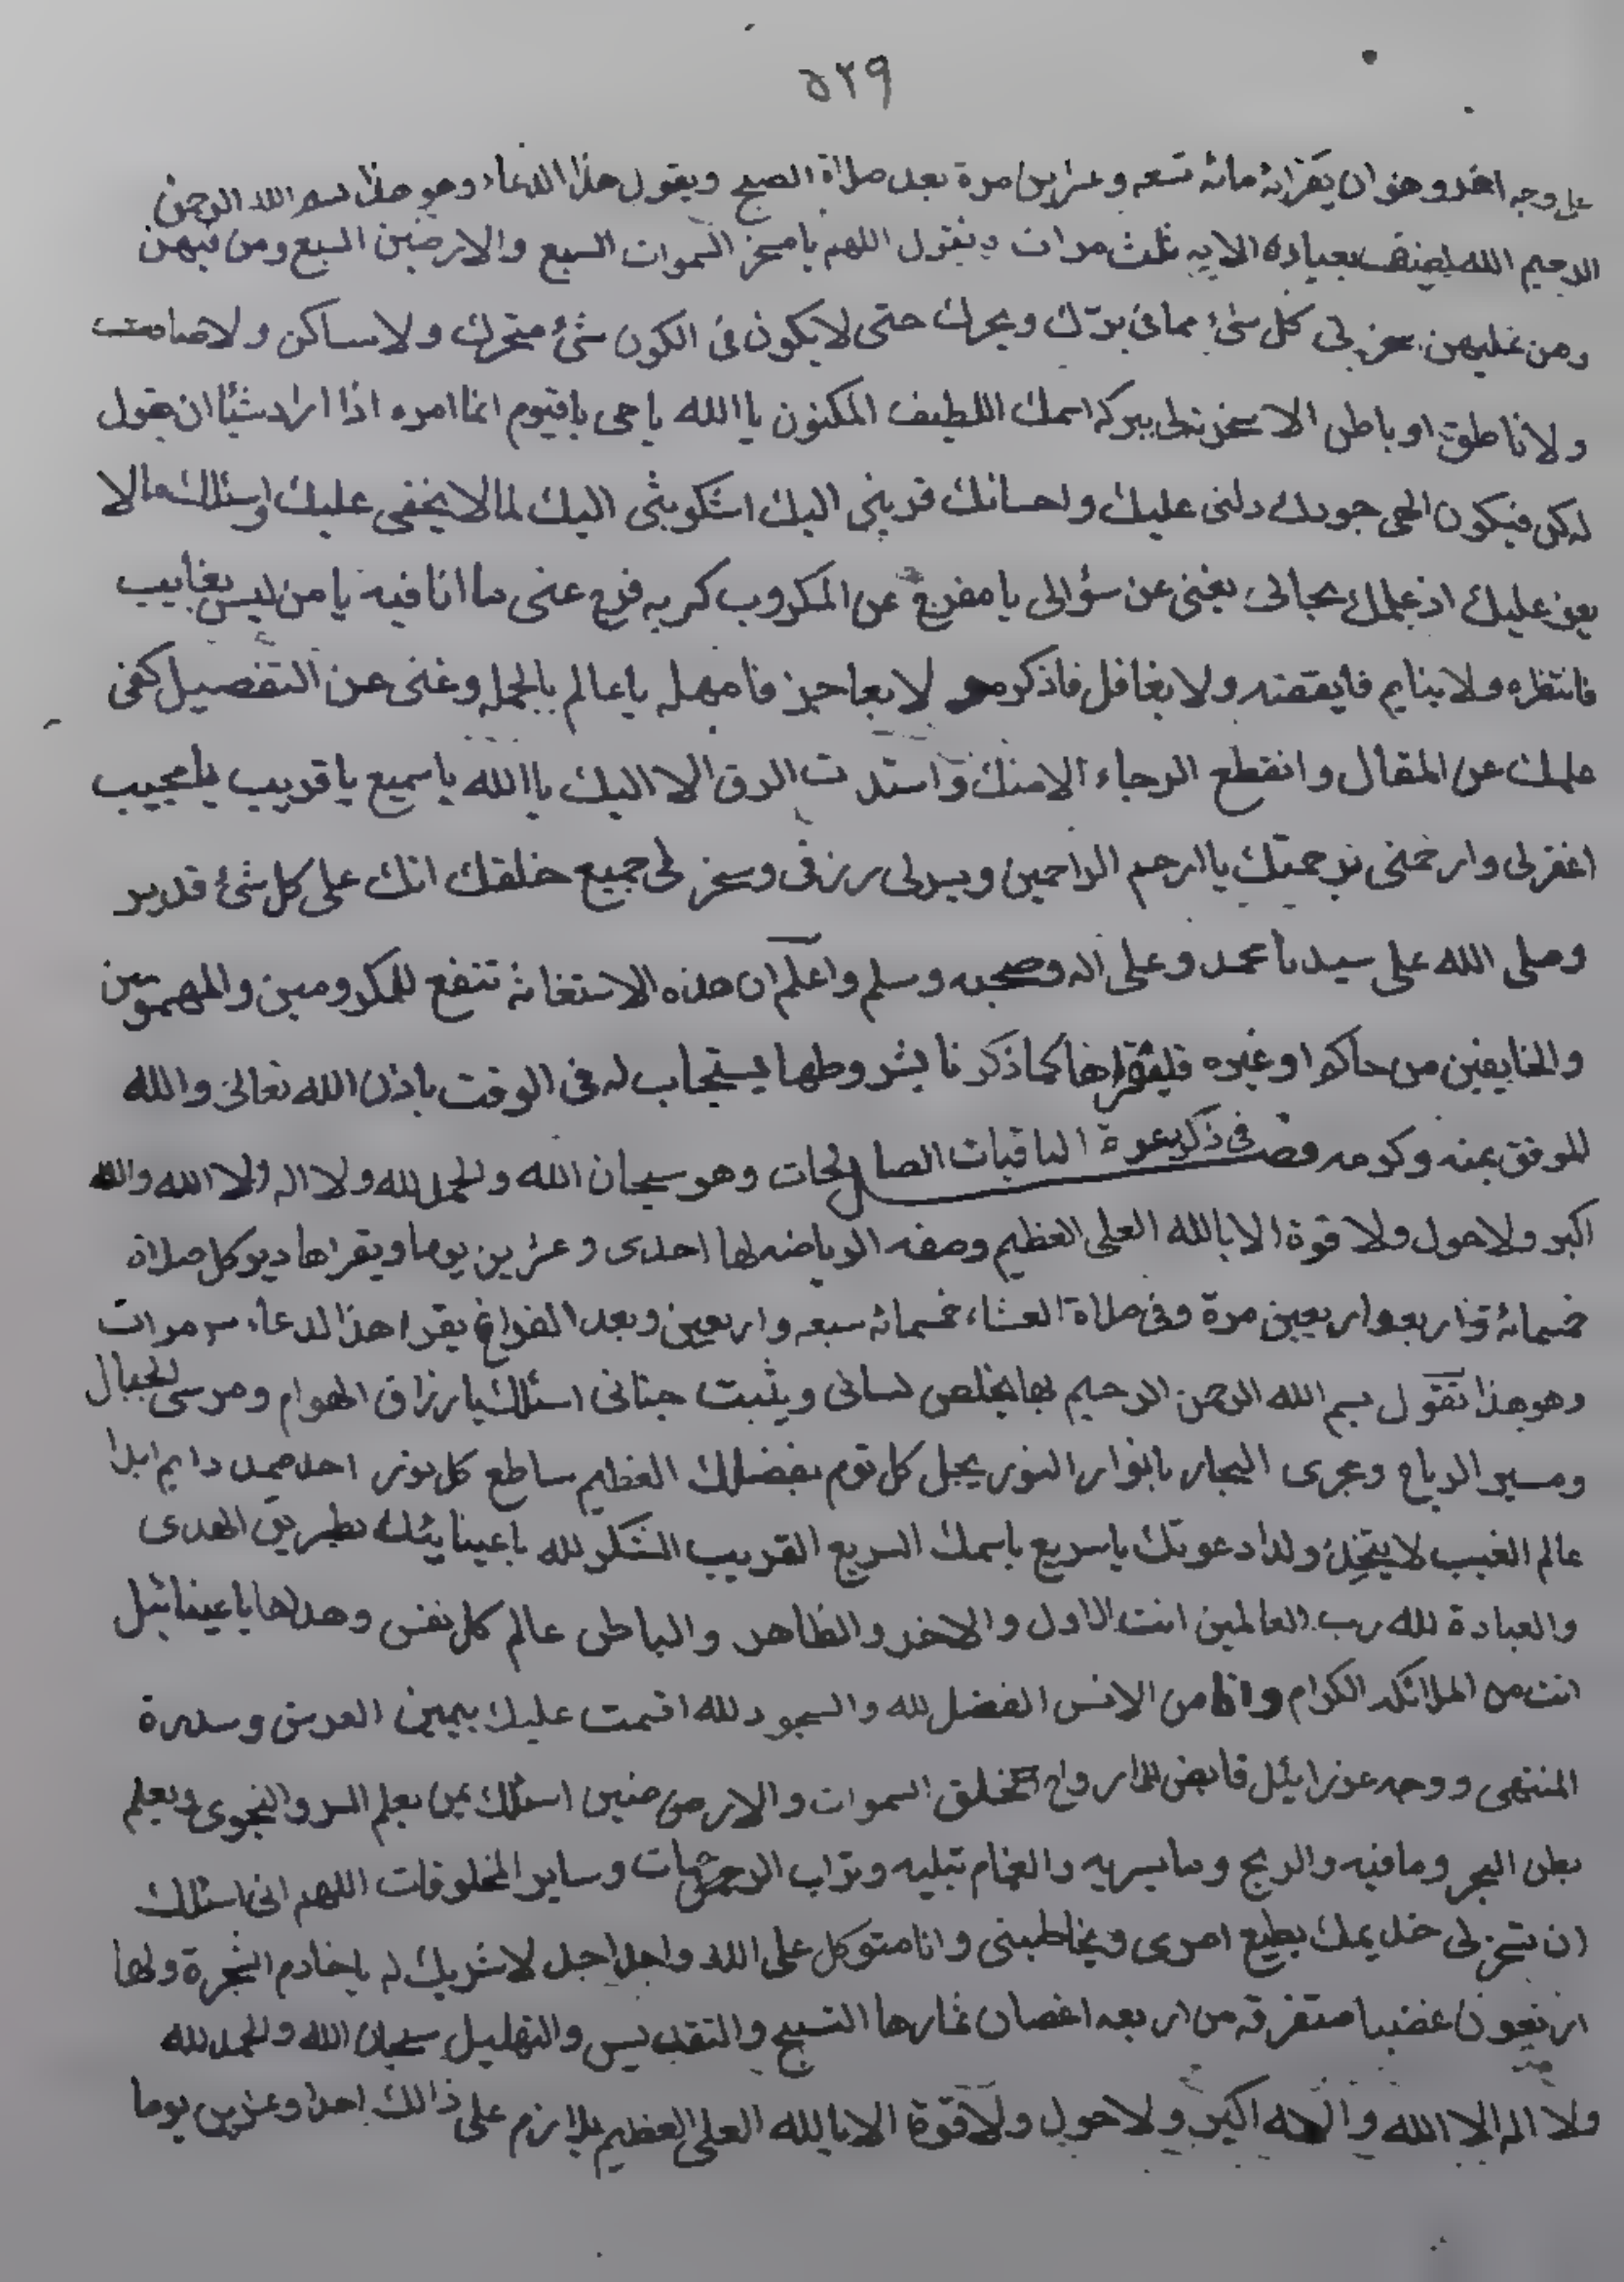 ٥٢٩
على وجه اخر وهو ان يقرائه مائه تسعه وعشرين مرة بعد صلاة الصبح ويقول هذا الدعاء وهو هذا بسم الله الرحمن
الرحيم الله لطيف بعباده الايه ثلث مرات ويقول اللهم يا مسخر السموات السبع والارضين السبع ومن فيهن
ومن عليهن سخر لى كل شئ مما فى برك وبحرك حتى لا يكون فى الكون شئ متحرك ولا ساكن ولا صامت
ولا ناطق او باطن الا سخرته لى ببركه اسمك اللطيف المكنون يا الله يا حى يا قيوم انما امره اذا اراد شيئا ان يقول
له كن فيكون الهى جودك دلنى عليك واحسانك قربنى اليك اشكو بثى اليك لما لا يخفى عليك واسئلك مالا
يعز عليك اذ علمك بحالى يغنى عن سؤالى يا مفرج عن المكروب كربه فرج عنى ما انا فيه يا من ليس بغايب
فانتظره ولا بنايم فايقضه ولا بغافل فاذكره ولا بعاجز فامهله يا عالم بالجمله وغنى عن التفصيل كفى
علمك عن المقال وانقطع الرجاء الا منك واستدت الرق الا اليك يا الله يا سميع يا قريب يا مجيب
اغفر لى وارحمنى برحمتك يا ارحم الراحمين ويسر لى رزقى وسخر لى جميع خلقك انك على كل شئ قدير
وصلى الله على سيدنا محمد وعلى اله وصحبه وسلم واعلم ان هذه الاستغاثه تنفع للمكروبين والمهمومين
والخايفين من حاكم او غيره فليقراها كما ذكرنا بشروطها يستجاب له فى الوقت باذن الله تعالى والله
الموفق بمنه وكرمه فصـ فى ذكر دعوة الباقيات الصالحات وهو سبحان الله والحمد لله ولا اله الا الله والله
اكبر ولا حول ولا قوة الا بالله العلى العظيم وصفه الرياضه لها احدى وعشرين يوما ويقراها دبر كل صلاة
خمسمائة واربع واربعين مرة وفى صلاة العشاء خمسمائه سبعه واربعين وبعد الفراغ يقرا هذا الدعاء ٣ مرات
وهو هذا تقول بسم الله الرحمن الرحيم بها يخلص لسانى ويثبت جنانى اسئلك يا رزاق الهوام ومرسى الجبال
ومسير الرياح ومجرى البحار بانوار النور يجل كل قوم بفضلك العظيم ساطع كل نور احد صمد دايم ابدا
عالم الغيب لا يتخذ ولدا دعوتك يا سريع باسمك السريع القريب الشكر لله يا عينايئل بطريق الهدى
والعبادة لله رب العالمين انت الاول والاخر والظاهر والباطن عالم كل نفس وهداها يا عينائيل
انت من الملائكه الكرام وانا من الانس الفضل لله والسجود لله اقسمت عليك بيمين العرش وسدرة
المنتهى ووجه عزرايئل قابض الارواح بخلق السموات والارض صنين اسئلك بمن يعلم السر والنجوى ويعلم
بطن البحر وما فيه والريح وما يسر به والغمام تبليه وتراب الوحشيات وساير المخلوقات اللهم انى اسئلك
ان تسخر لى خديمك يطيع امرى ويخاطبنى وانا متوكل على الله واحد اجل لا شريك له يا خادم الشجرة ولها
اربعون غضبا متفرقه من اربعه اغصان ثمارها التسبيح والتقديس والتهليل سبحان الله والحمد لله
ولا اله الا الله والله اكبر ولا حول ولا قوة الا بالله العلى العظيم يلازم على ذالك احدا وعشرين يوما